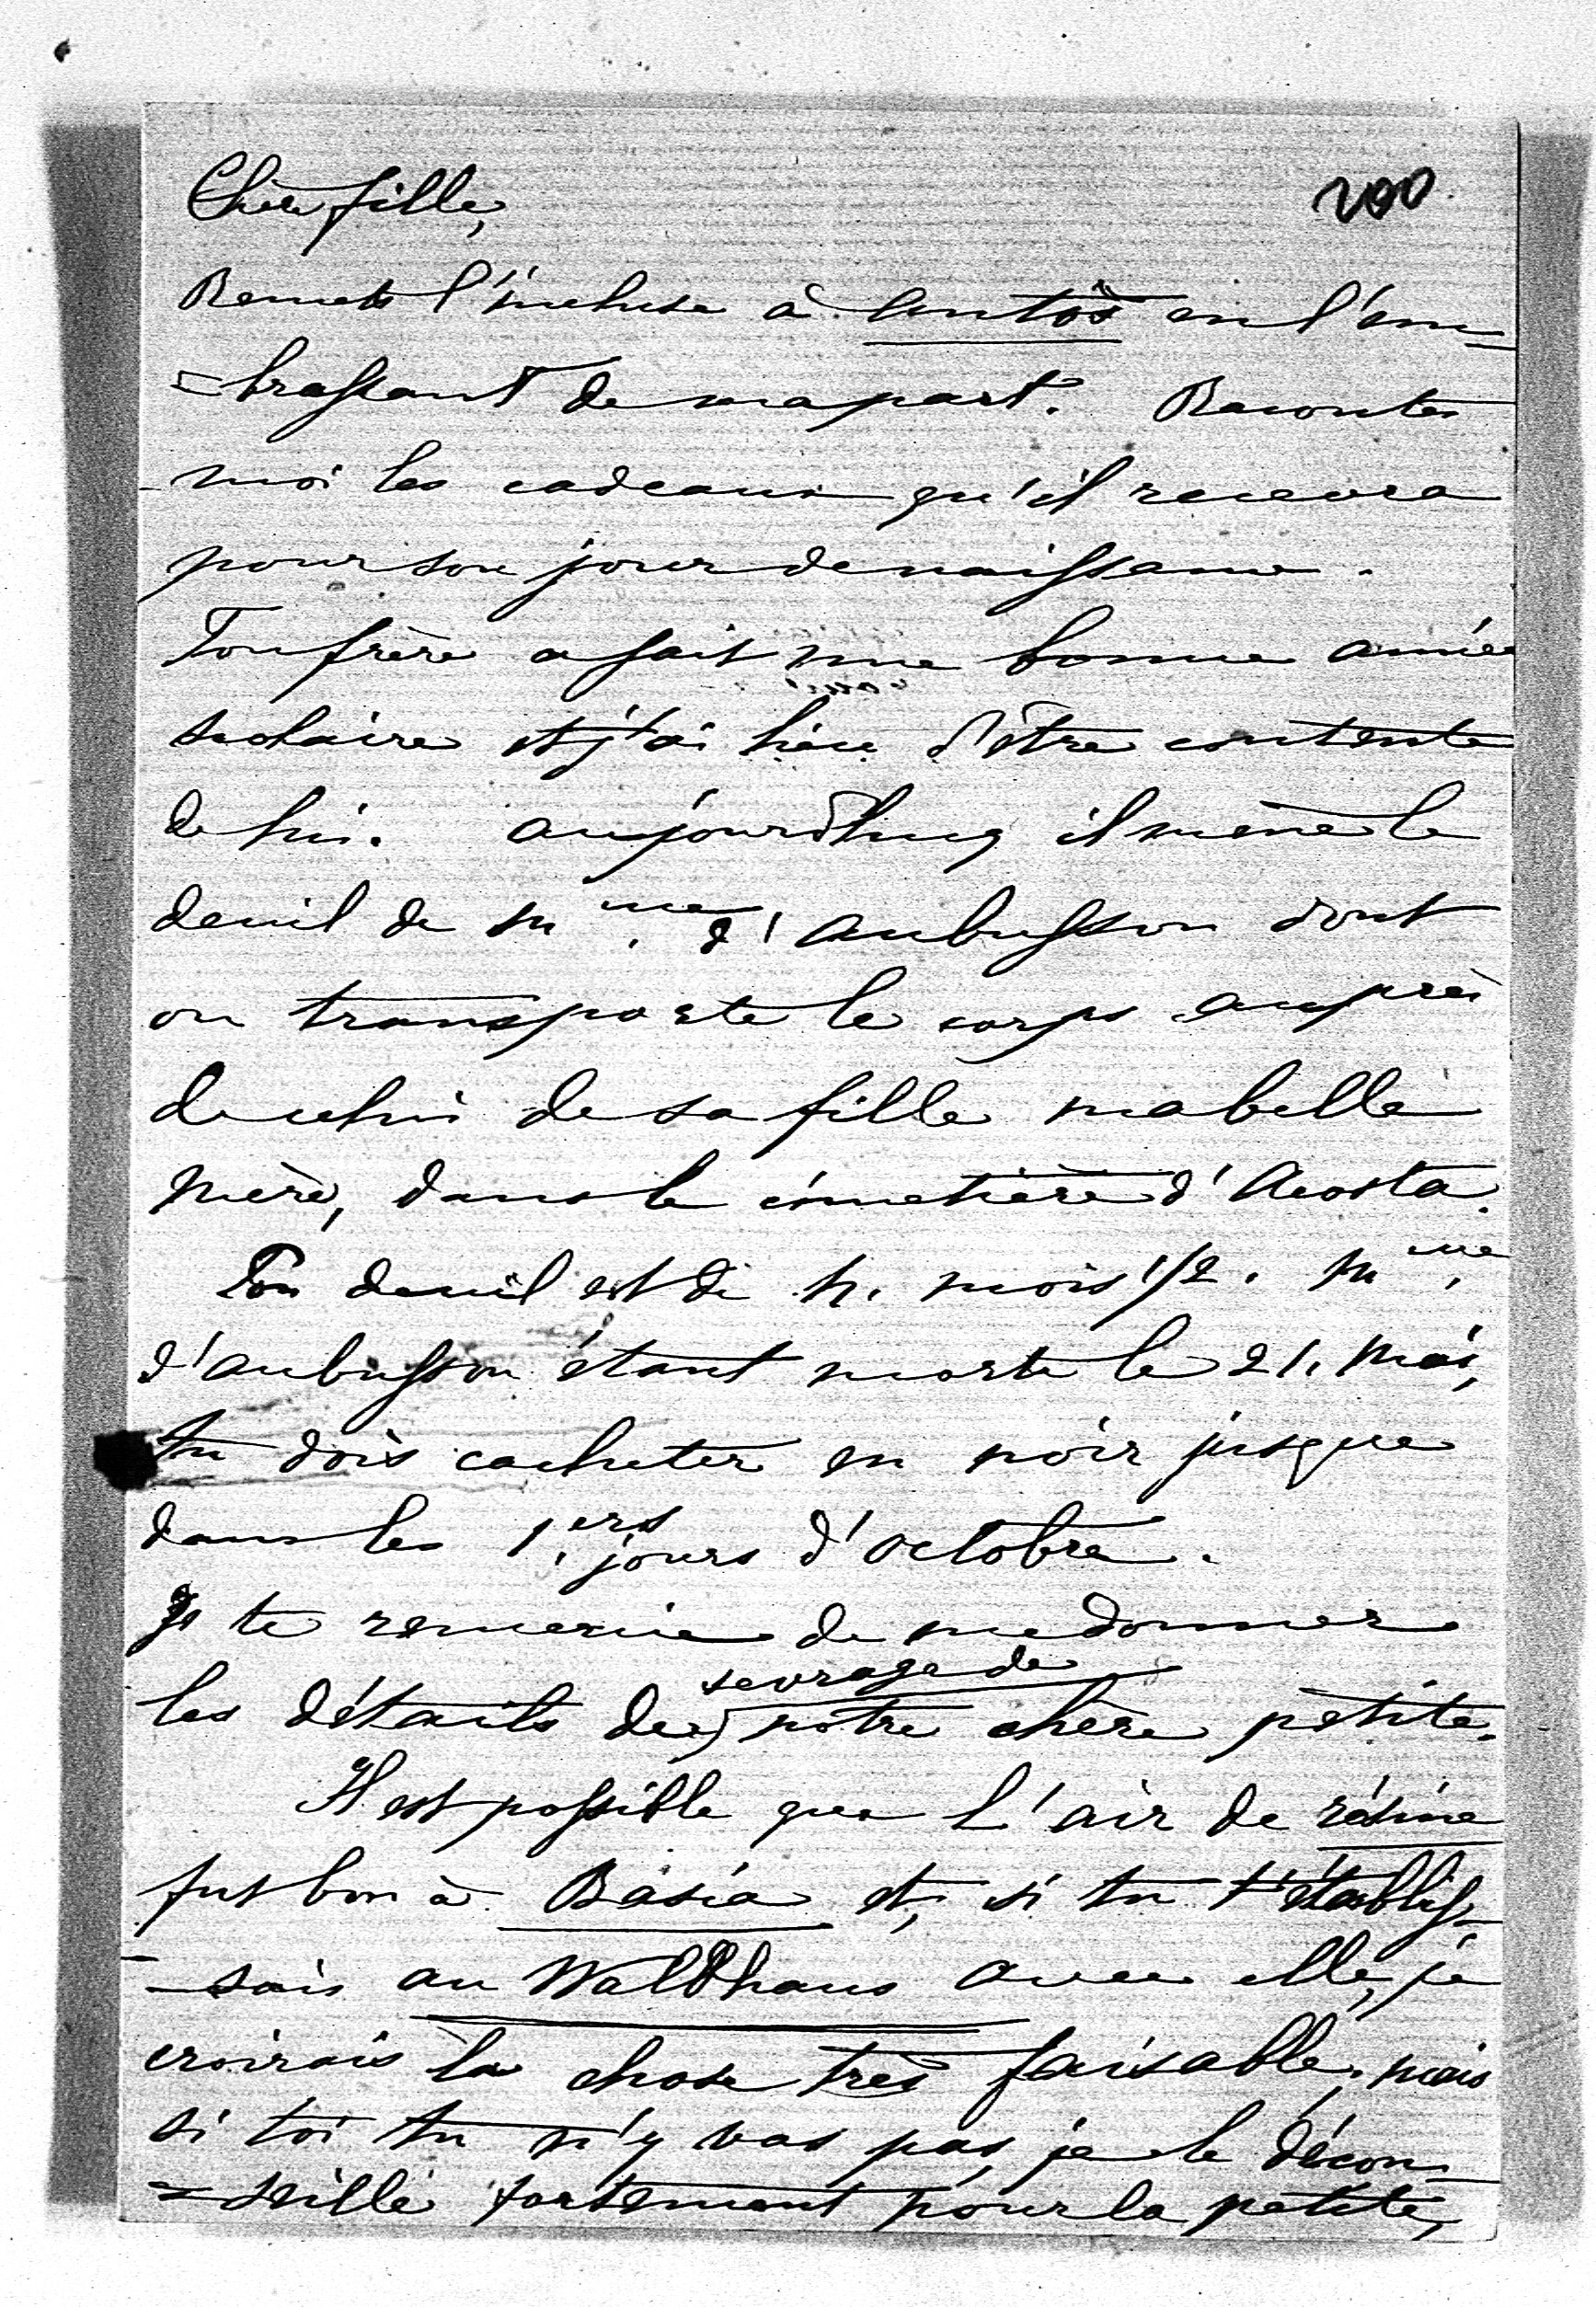 Chère fille,
200
Remets l'incluse à Antoś en l'em-
=brassant de ma part. Racontes
moi les cadeaux qu'il recevra
pour son jour de naissance.
Ton frère a fait une bonne année
scolaire et j'ai lieu d'être contente
de lui. aujourd'huy il mène le
deuil de Mme. d'Aubusson dont
on transporte le corps auprès
de celui de sa fille ma belle
Mère, dans le cimetière d'Acosta.
Ton deuil est de 4. mois 1/2. Mme.
d'Aubusson étant morte le 21. Mai,
tu dois cacheter en noir jusque
dans les 1.ers jours d'octobre.
Je te remercie de me donner
les détails de sevrage de notre chère petite.
Il est possible que l'air de résine
fut bon à Basia et, si tu t'établis-
-sais au Waldhaus avec elle, je
croirais la chose très faisable; mais
si toi tu n'y vas pas, je le décon-
=seille fortement pour la petite,